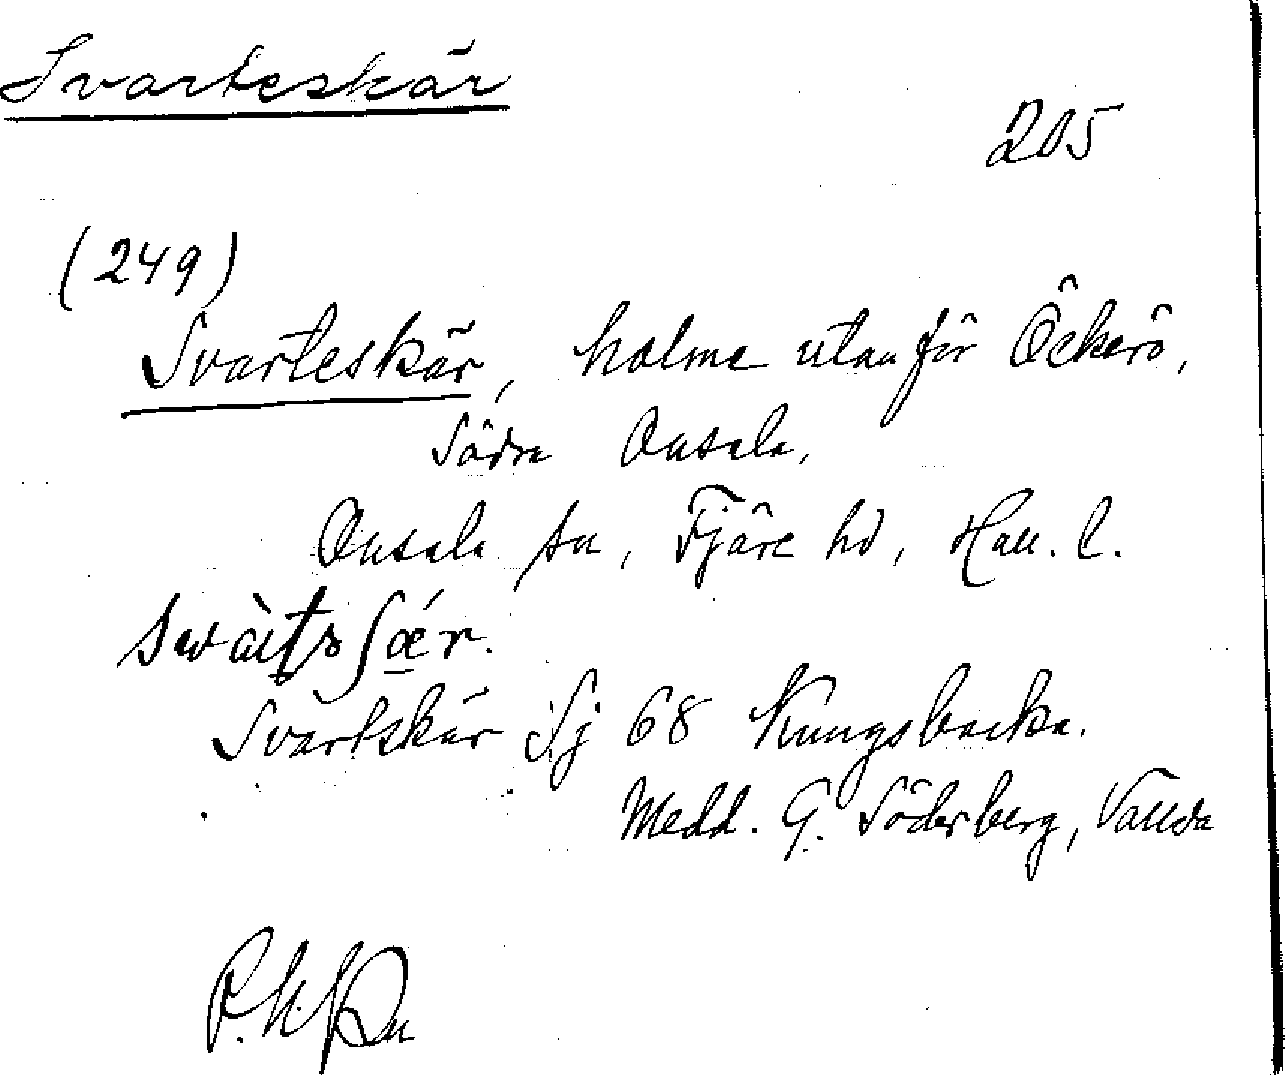 Svarteskär
205
(249)
Svarteskär, holme utanför Öckerö,
Södra Onsala.
Onsala sn, Fjäre hd, Hall. l.
Svartskär Sj 68 Kungsbacka.
Medd. G. Söderberg, Vallda